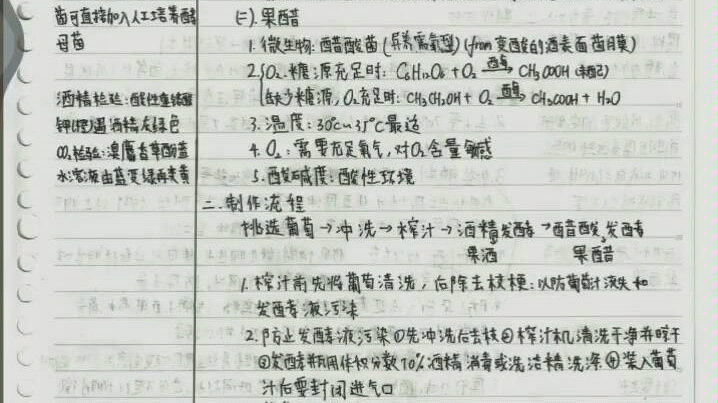 菌可直接加入人工培养酵
母菌
酒精检验:酸性重铬酸
钾(橙)遇酒精灰绿色
CO₂检验:溴麝香草酚蓝
水溶液由蓝变绿再变黄
(二).果醋
1.微生物:醋酸菌(异养需氧型)(from变酸的酒表面菌膜)
2.{O₂.糖源充足时:C₆H₁₂O₆+O₂ 酶 CH₃COOH
缺少糖源,O₂充足时:CH₃CH₂OH+O₂ 酶 CH₃COOH+H₂O
3.温度:30℃~35℃最适
4.O₂:需要充足氧气,对O₂含量敏感
5.酸碱度:酸性环境
二.制作流程
挑选葡萄→冲洗→榨汁→酒精发酵→醋酸发酵
果酒 果醋
1.榨汁前先将葡萄清洗,后除去枝梗:以防葡萄汁流失和
发酵液污染
2.防止发酵液污染①先冲洗后去枝②榨汁机清洗干净并晾干
③发酵并用体积分数70%酒精消毒或洗洁精洗涤④装入葡萄
汁后要封闭进气口